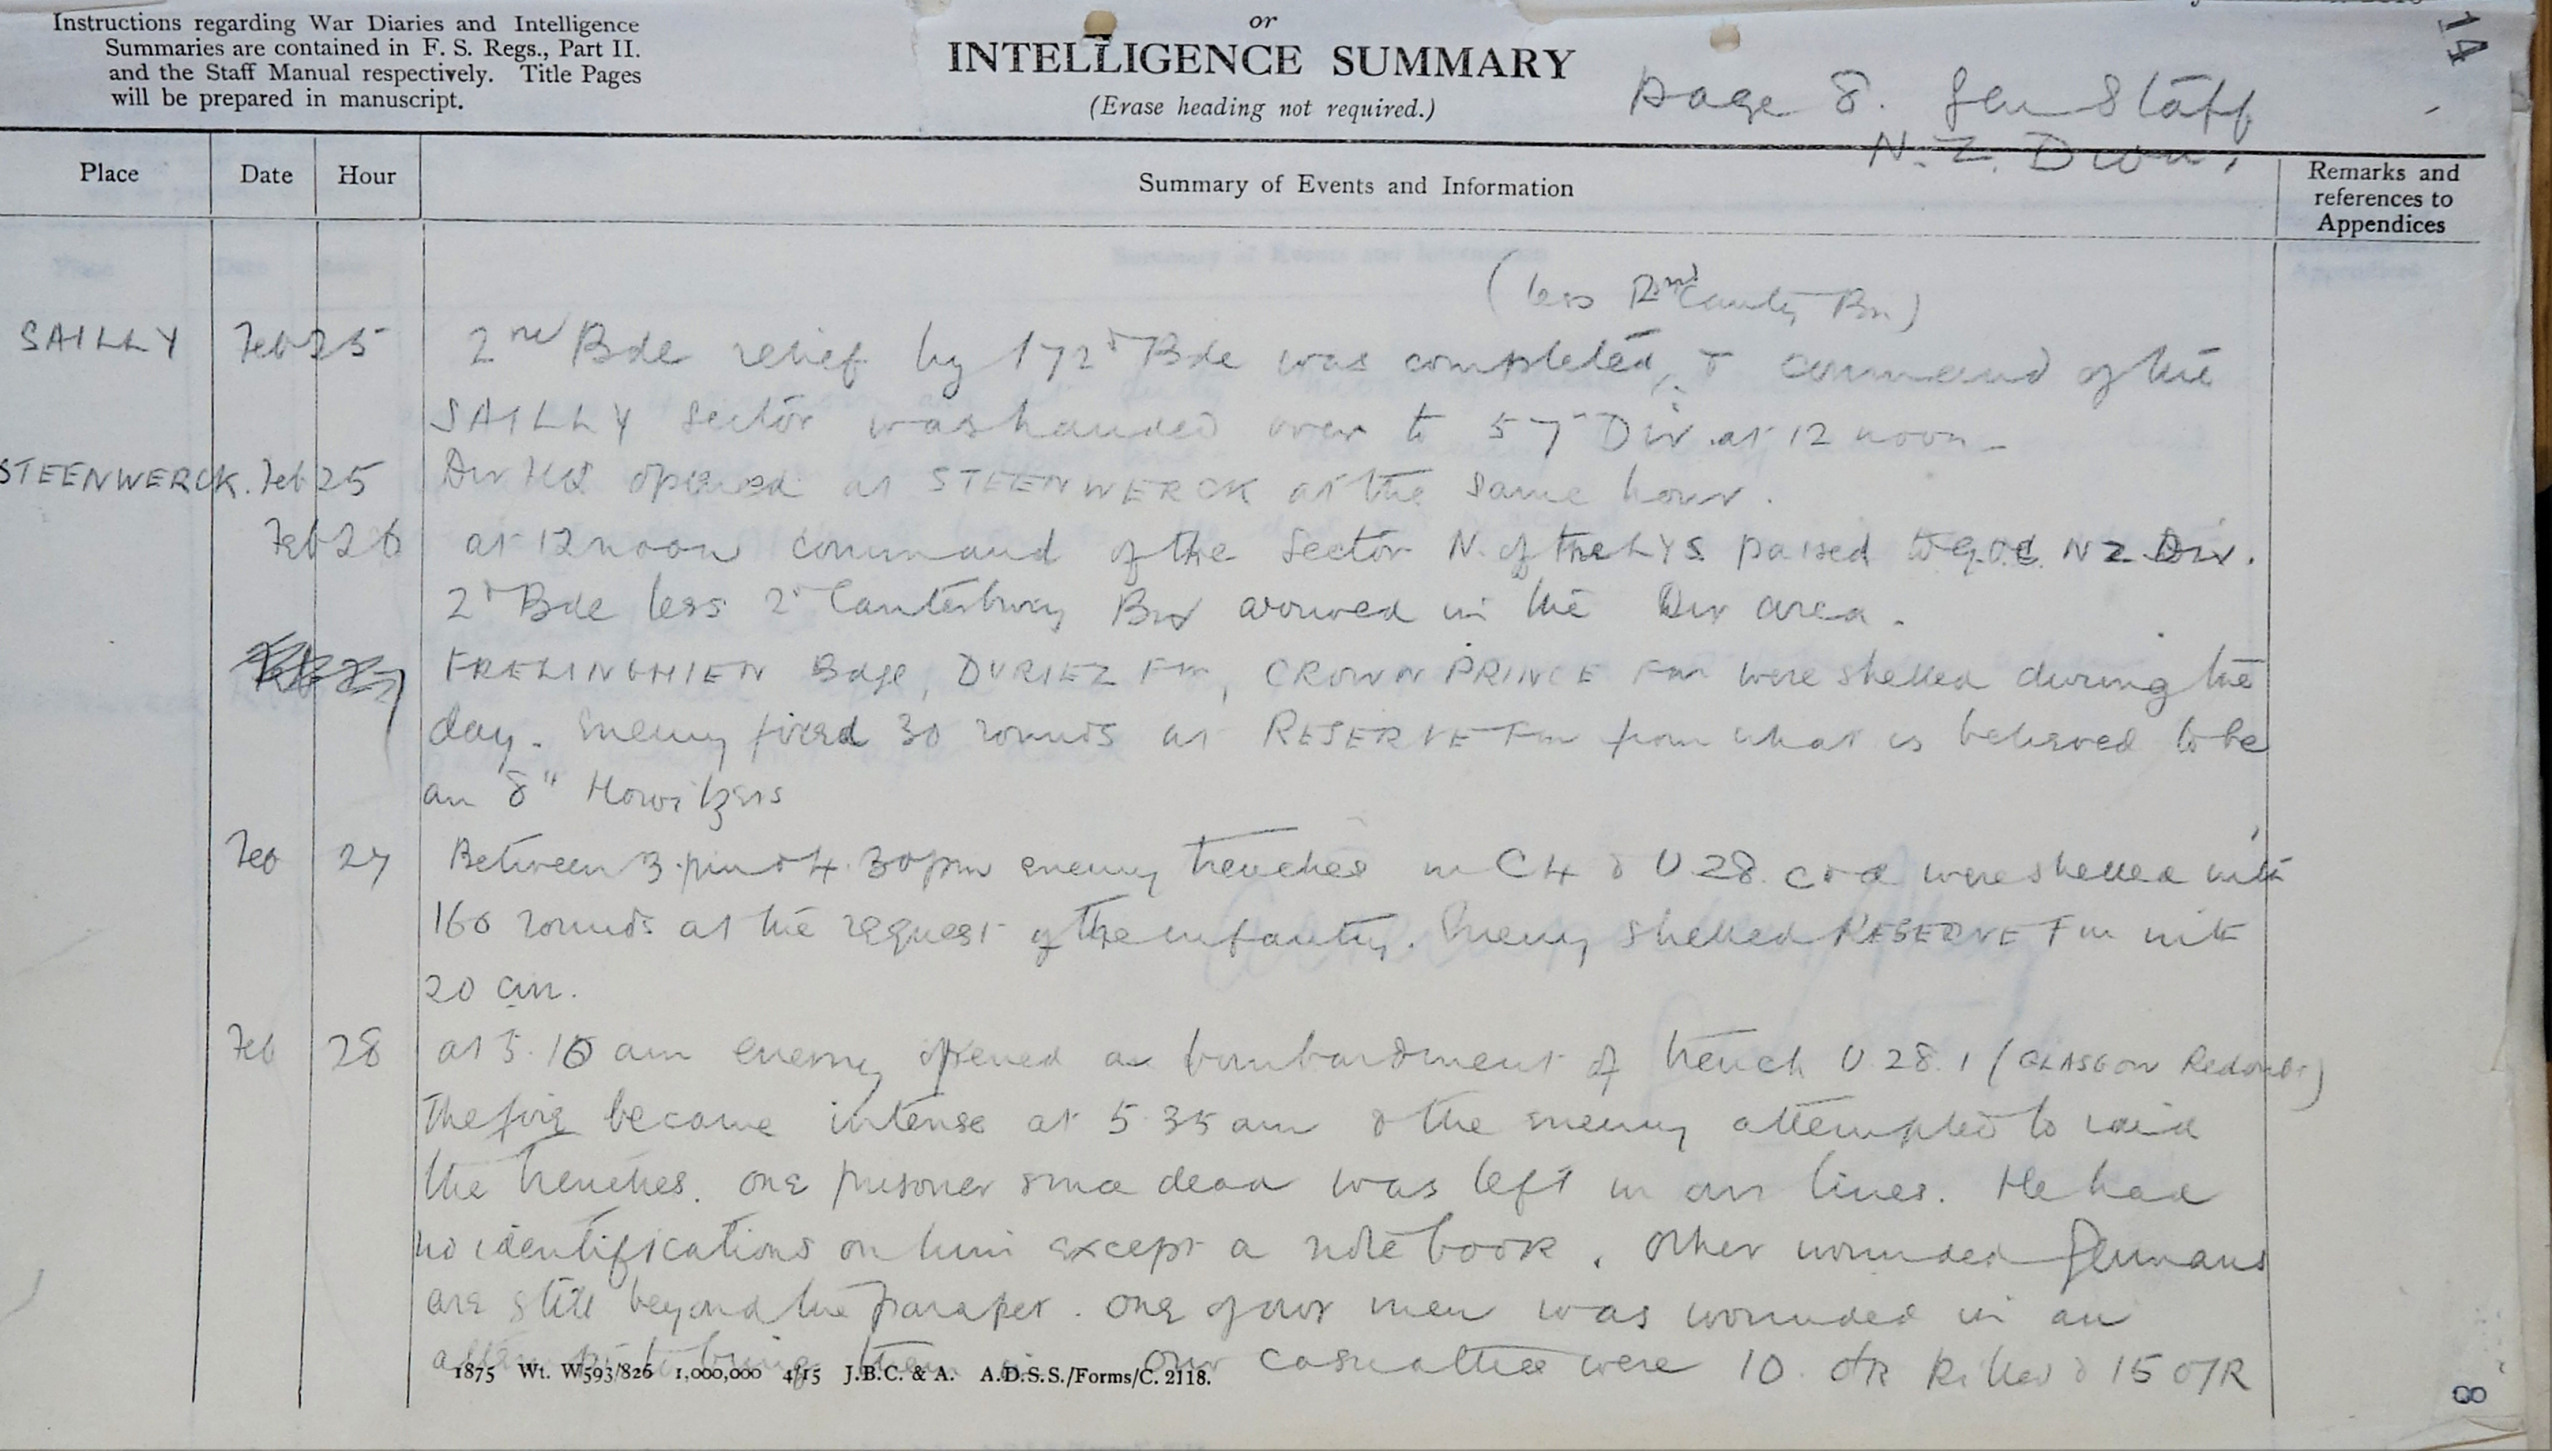 Instructions regarding War Diaries and Intelligence
Summaries are contained in F. S. Regs., Part II.
and the Staff Manual respectively. Title Pages
will be prepared in manuscript.
or
INTELLIGENCE SUMMARY
(Erase heading not required.)
14
Page 8. Gen Staff
N.Z. Divn.
Place Date Hour Summary of Events and Information Remarks and references to Appendices
(less 2nd Canty Bn)
SAILLY Feb 25 2nd Bde relief by 172d Bde was completed, & command of the
SAILLY Sector was handed over to 57 Div. at 12 noon -
STEENWERCK. Feb 25 Div HQ opened at STEENWERCK at the same hour.
Feb 26 at 12 noon command of the Sector N. of the LYS passed to G.O.C. NZ Div.
2d Bde less 2d Canterbury Bn arrived in the Div area.
FRELINGHIEN Bdge, DURIEZ Fm, CROWN PRINCE Fm were shelled during the
day. Enemy fired 30 rounds at RESERVE Fm from what is believed to be
an 8" Howitzers
Feb 27 Between 3.pm & 4.30pm enemy trenches in C4 & U.28. c & d were shelled with
160 rounds at the request of the infantry. Enemy shelled RESERVE Fm with
20 cm.
Feb 28 at 5.15 am enemy opened a bombardment of trench U.28.1 (GLASGOW Redoubt)
The fire became intense at 5.35 am & the enemy attempted to raid
the trenches. One prisoner since dead was left in our lines. He had
no identifications on him except a note book. Other wounded Germans
are still beyond the parapet. One of our men was wounded in an
attempt to bring them in. Our casualties were 10. O/R killed & 15 O/R
1875 Wt. W593/826 1,000,000 4/15 J.B.C. & A. A.D.S.S./Forms/C. 2118.
8